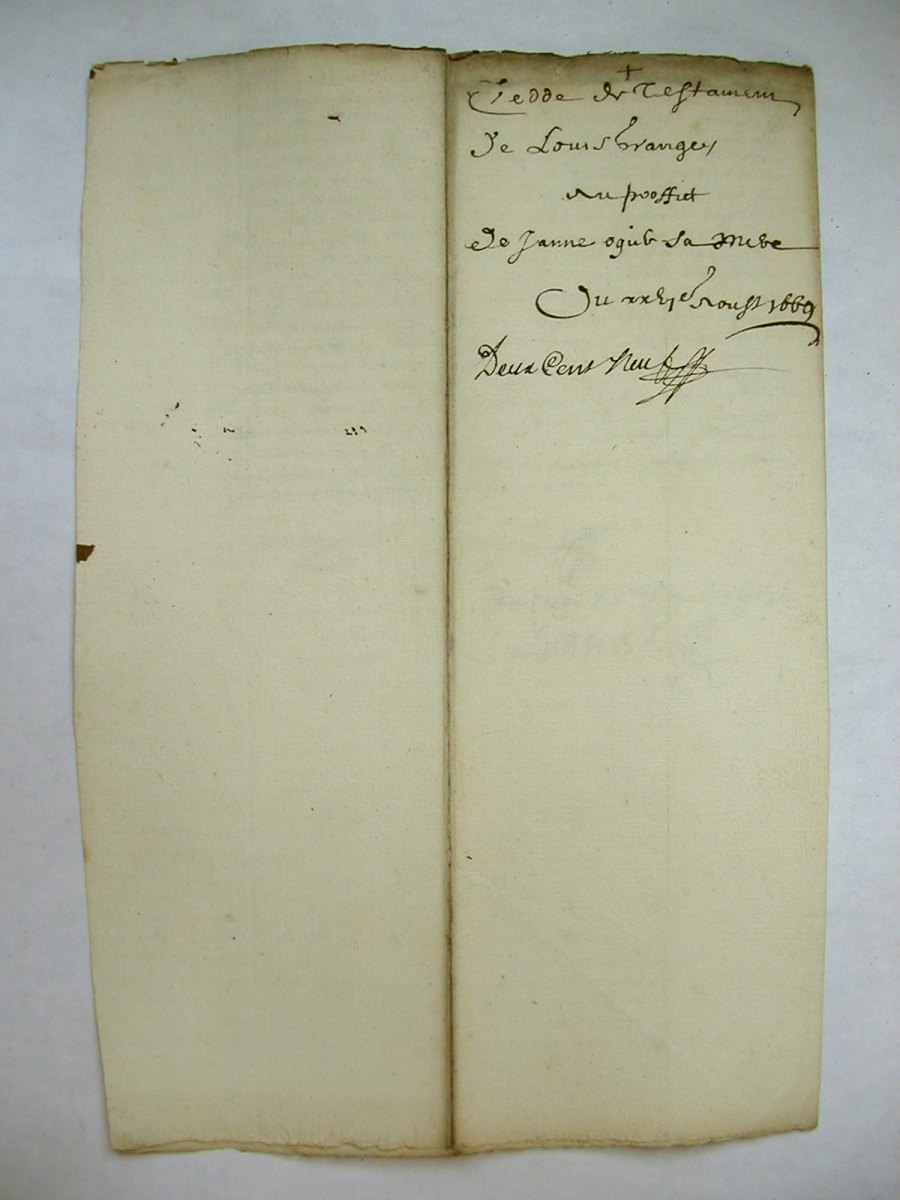 +
Cedde de Testament
De Louis Granger
Au prooffict
De Janne ogier Sa Mere
Du xxvje Aoust 1669
Deux Cent Neuf